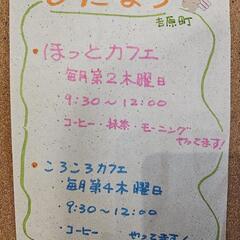 吉原町
・ほっとカフェ
毎月第2木曜日
9:30～12:00
コーヒー・抹茶・モーニング
やってます!
・ころころカフェ
毎月第4木曜日
9:30～12:00
コーヒー
やってます!